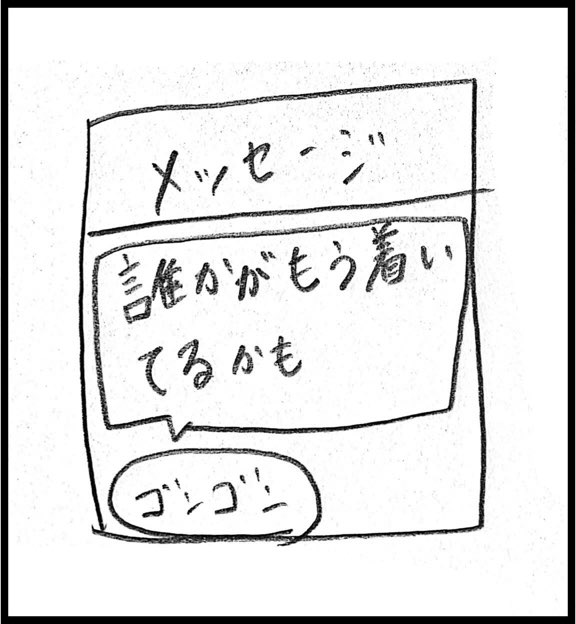 メッセージ
誰かがもう着い
てるかも
ゴンゴン